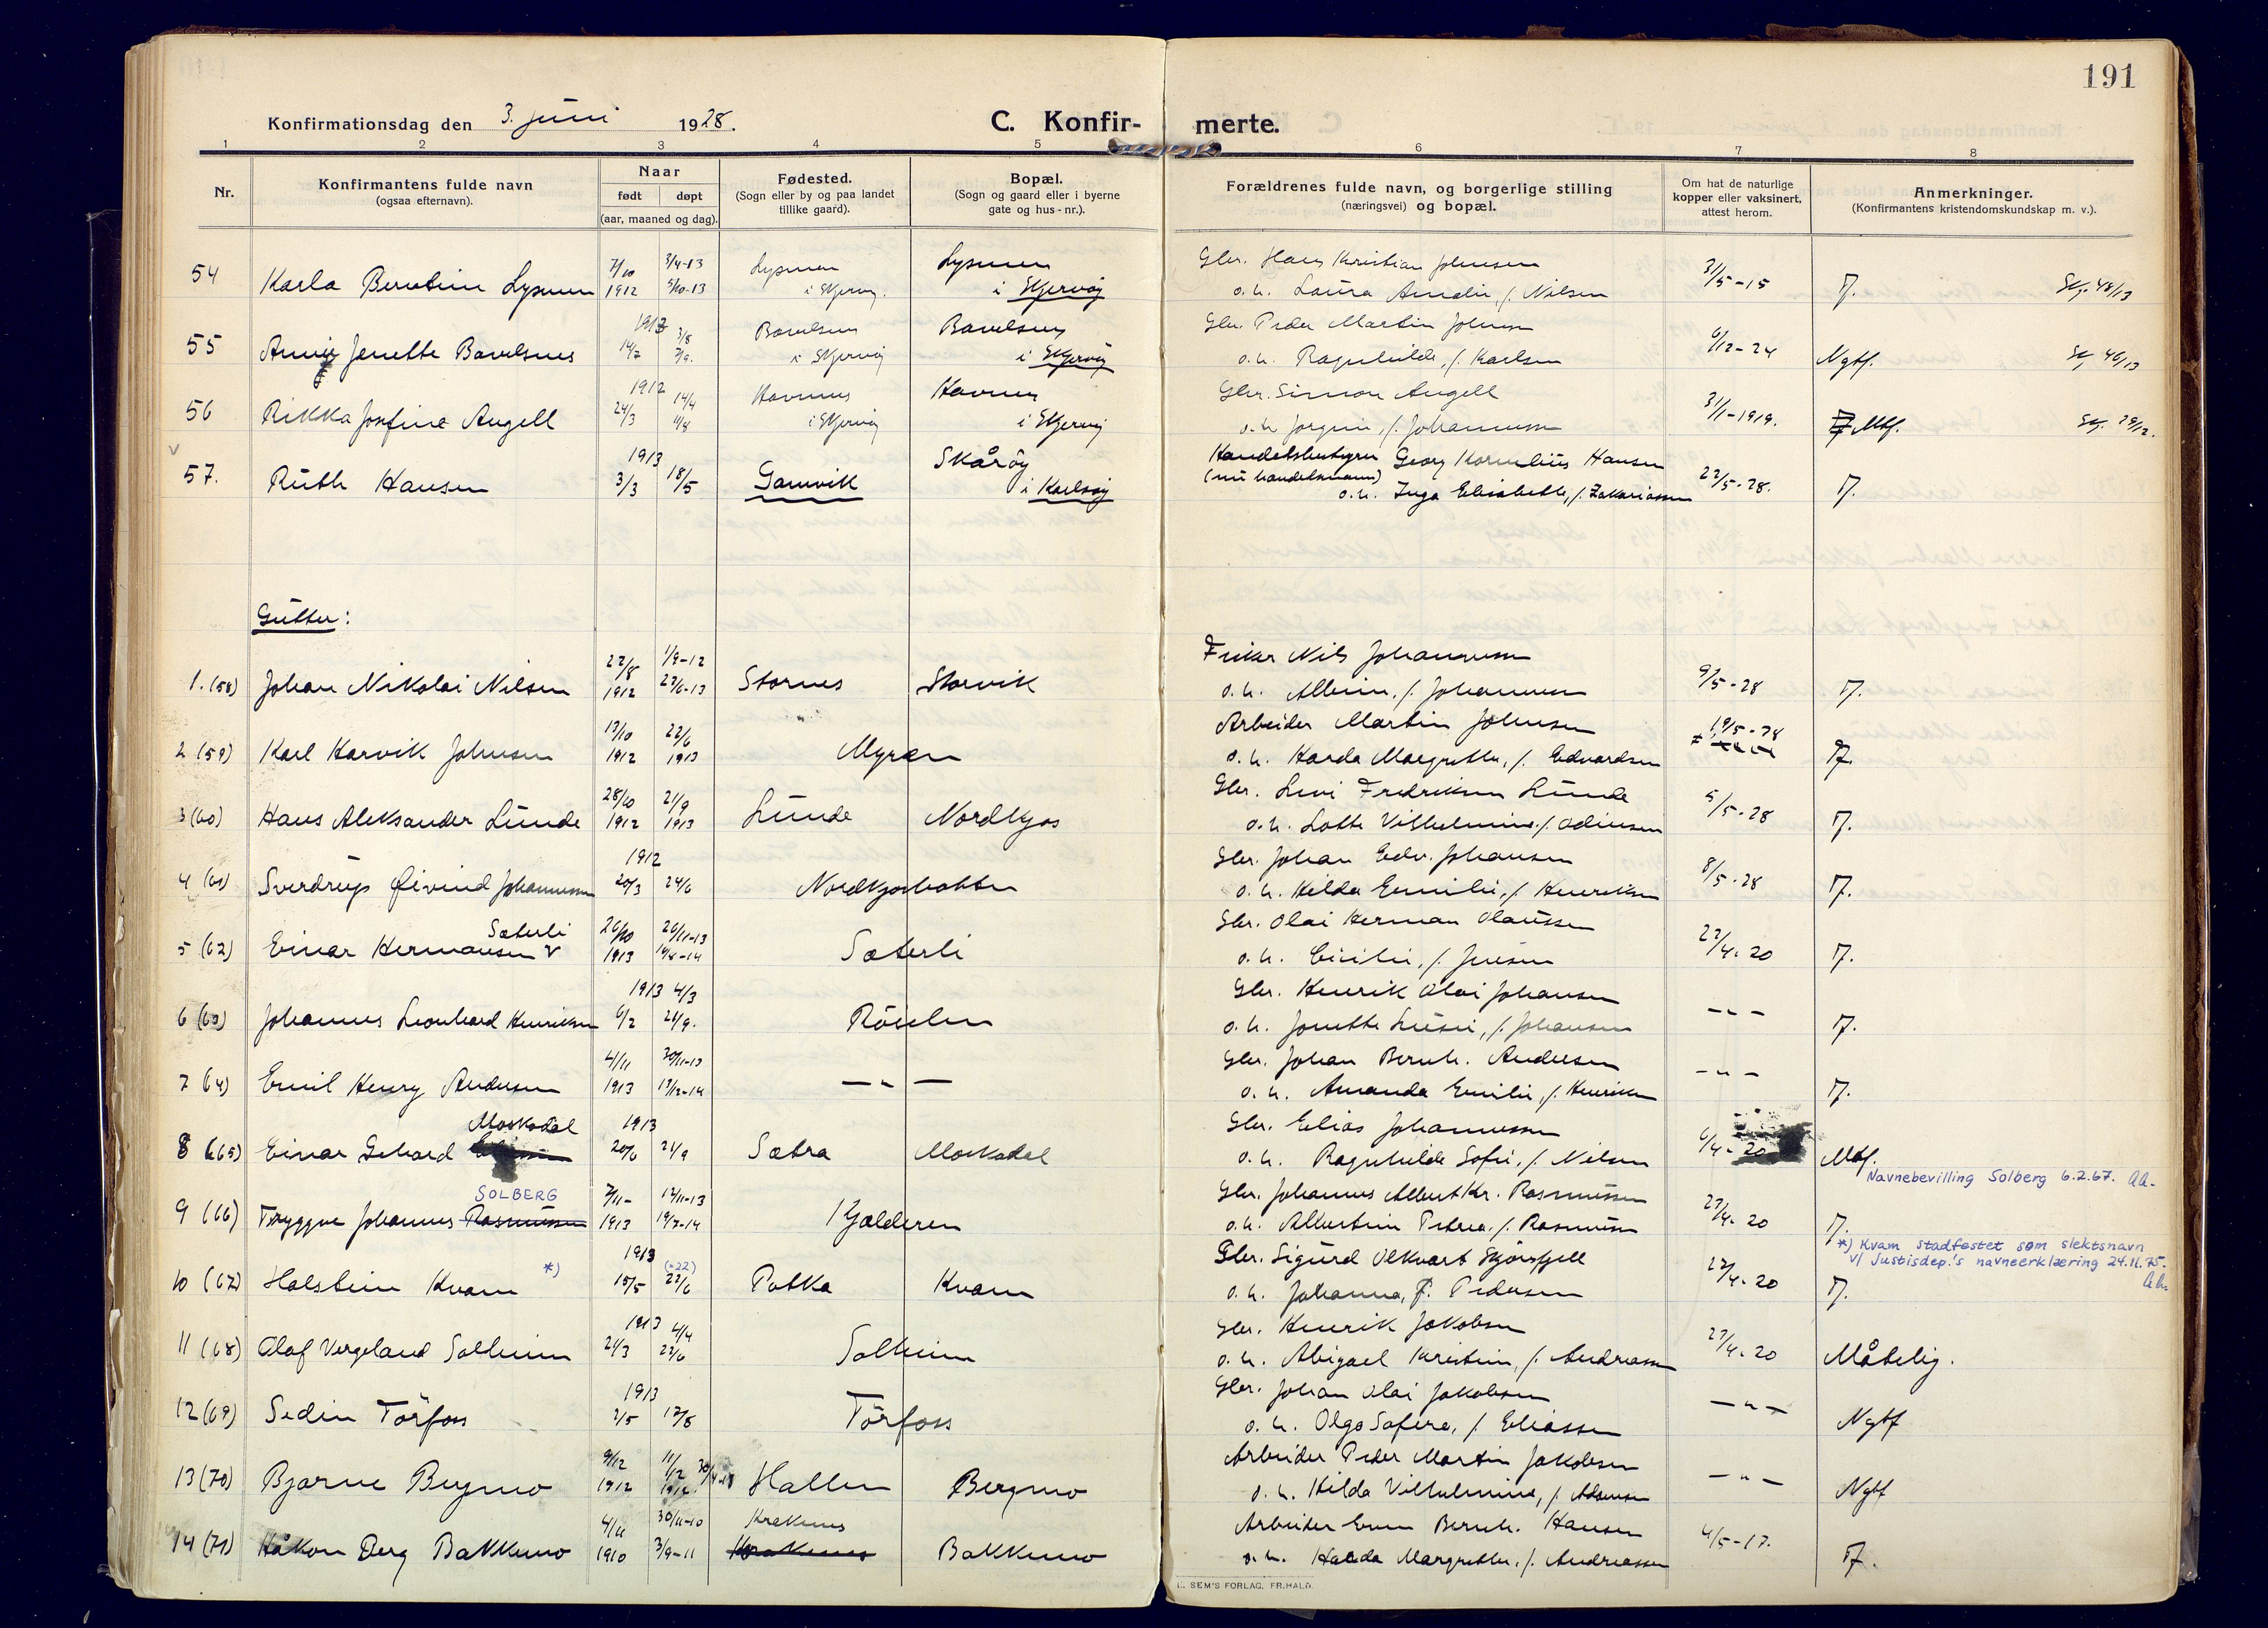 191
Konfirmationsdag den 3. juni 1928.
C. Konfirmerte.
1 2 3 4 5 6 7 8
Nr.
Konfirmantens fulde navn
(ogsaa efternavn).
Naar
født døpt
(aar, maaned og dag).
Fødested.
(Sogn eller by og paa landet
tillike gaard).
Bopæl.
(Sogn og gaard eller i byerne
gate og hus-nr.).
Forældrenes fulde navn, og borgerlige stilling
(næringsvei) og bopæl.
Om hat de naturlige
kopper eller vaksinert,
attest herom.
Anmerkninger.
(Konfirmantens kristendomskundskap m. v.).
54 Karla Berntine 7/10 1912 3/4-13 5/10-13 i Skjervøy. i Skjervøy
Gbr. Hans Kristian Johnsen
o. h. Laura Amalie, f. Nilsen 31/5-15 T. Skj. 48/13
55 Jenette 14/2 3/8 7/9. i Skjervøy i Skjervøy
Gbr. Peder Martin Johnsen
o. h. Ragnhilde, f. Karlsen 6/12-24 Ngtf. 46/13
56 Rikka Josefine Angell 1912 24/3 14/4 11/8 Havnnes i Skjervøy Havnnes i Skjervøy
Gbr. Simon Angell
o. h. Jørgine, f. Johannessen 31/1-1919. Mtf. Skj. 29/12.
57. Ruth Hansen 1913 3/3 18/5 Gamvik Skårøy i Karlsøy
Handelsbestyrer Georg Kornelius Hansen
(nu handelsmann)
o. h. Inga Elisabeth, f. Zakariassen 22/5-28. T.
Gutter:
1. (58) Johan Nikolai Nilsen 22/8 1912 1/9-12 22/6-13 Stornes Storvik
Fisker Nils Johannessen
o. h. Albine, f. Johannessen 9/5-28 T.
2 (59) Karl Harvik Johnsen 13/10 1912 22/6 1913 Myran
Arbeider Martin Johnsen
o. h. Harda Margrethe, f. Edvardsen 19/5-28 T.
3 (60) Hans Aleksander Lunde 28/10 1912 21/9 1913 Lunde Nordkjos
Gbr. Levi Fredriksen Lunde
o. h. Lotte Vilhelmine f. Odinsen 5/5-28 T.
4 (61) Sverdrup Øivind Johannessen 1912 20/3 24/6 Nordkjosbotn
Gbr. Johan Edv. Johansen
o. h. Hilda Emilie, f. Henriksen 8/5-28 T.
5 (62) Einar Hermansen Sæterli 26/10 1913 26/11-13 14/6-14 Sæterli
Gbr. Olai Herman Olaussen
o. h. Cicilie, f. Jensen 22/4-20 T.
6 (63) Johannes Leonhard Henriksen 1913 6/2 4/3 21/9. Röielen
Gbr. Henrik Olai Johansen
o. h. Jonette Lusie, f. Johansen — " — T.
7 (64) Emil Henry Andersen 4/11 1913 30/11-13 13/12-14 — " —
Gbr. Johan Bernh. Andersen
o. h. Amanda Emilie, f. Henriksen — " — T.
8 (65) Einar Gerhard Moskodal 1913 20/6 21/9 Sætra Moskodal
Gbr. Elias Johannessen
o. h. Ragnhilde Sofie, f. Nilsen 6/4-20 Mtf.
Navnebevilling Solberg 6.2.67.
9 (66) Tryggve Johannes Rasmussen SOLBERG 7/11- 1913 12/11-13 19/7-14 Kjølderen
Gbr. Johannes Albert Kr. Rasmussen
o. h. Albertine Petrea, f. Rasmussen 27/4. 20 T.
*) Kvam stadfestet som slektsnavn
v/ Justisdep.'s navneerklæring 24.11.75.
10 (67) Halstein Kvam *) 1913 15/5 (=22) 22/6 Polka Kvam
Gbr. Sigurd Olkvart Skjørsfjell
o. h. Johanna, f. Pedersen 22/4. 20 T.
11 (68) Olaf Vergeland Solheim 1913 21/3 4/4 22/6 Solheim
Gbr. Henrik Jakobsen
o. h. Abigael Kristine, f. Andreassen 27/4. 20 Måtelig.
12 (69) Sedin Törfoss 1913 2/5 17/8 Törfoss
Gbr. Johan Olai Jakobsen
o. h. Olga Safira, f. Eliassen — " — Ngtf
13 (70) Bjarne Bergmo 9/12 1912 Hallen Bergmo
Arbeider Peder Martin Jakobsen
o. h. Hilda Vilhelmine, f. Adamsen — " — Ngtf
14 (71) Håkon Berg Bakkemo 4/11 1910 30/11-10 3/9-11 Krakenes Krakenes Bakkemo
Arbeider Bernh. Hansen
o. h. Harda Margrethe, f. Andreassen 4/5-17. T.
E. SEM'S FORLAG, FR.HALD.